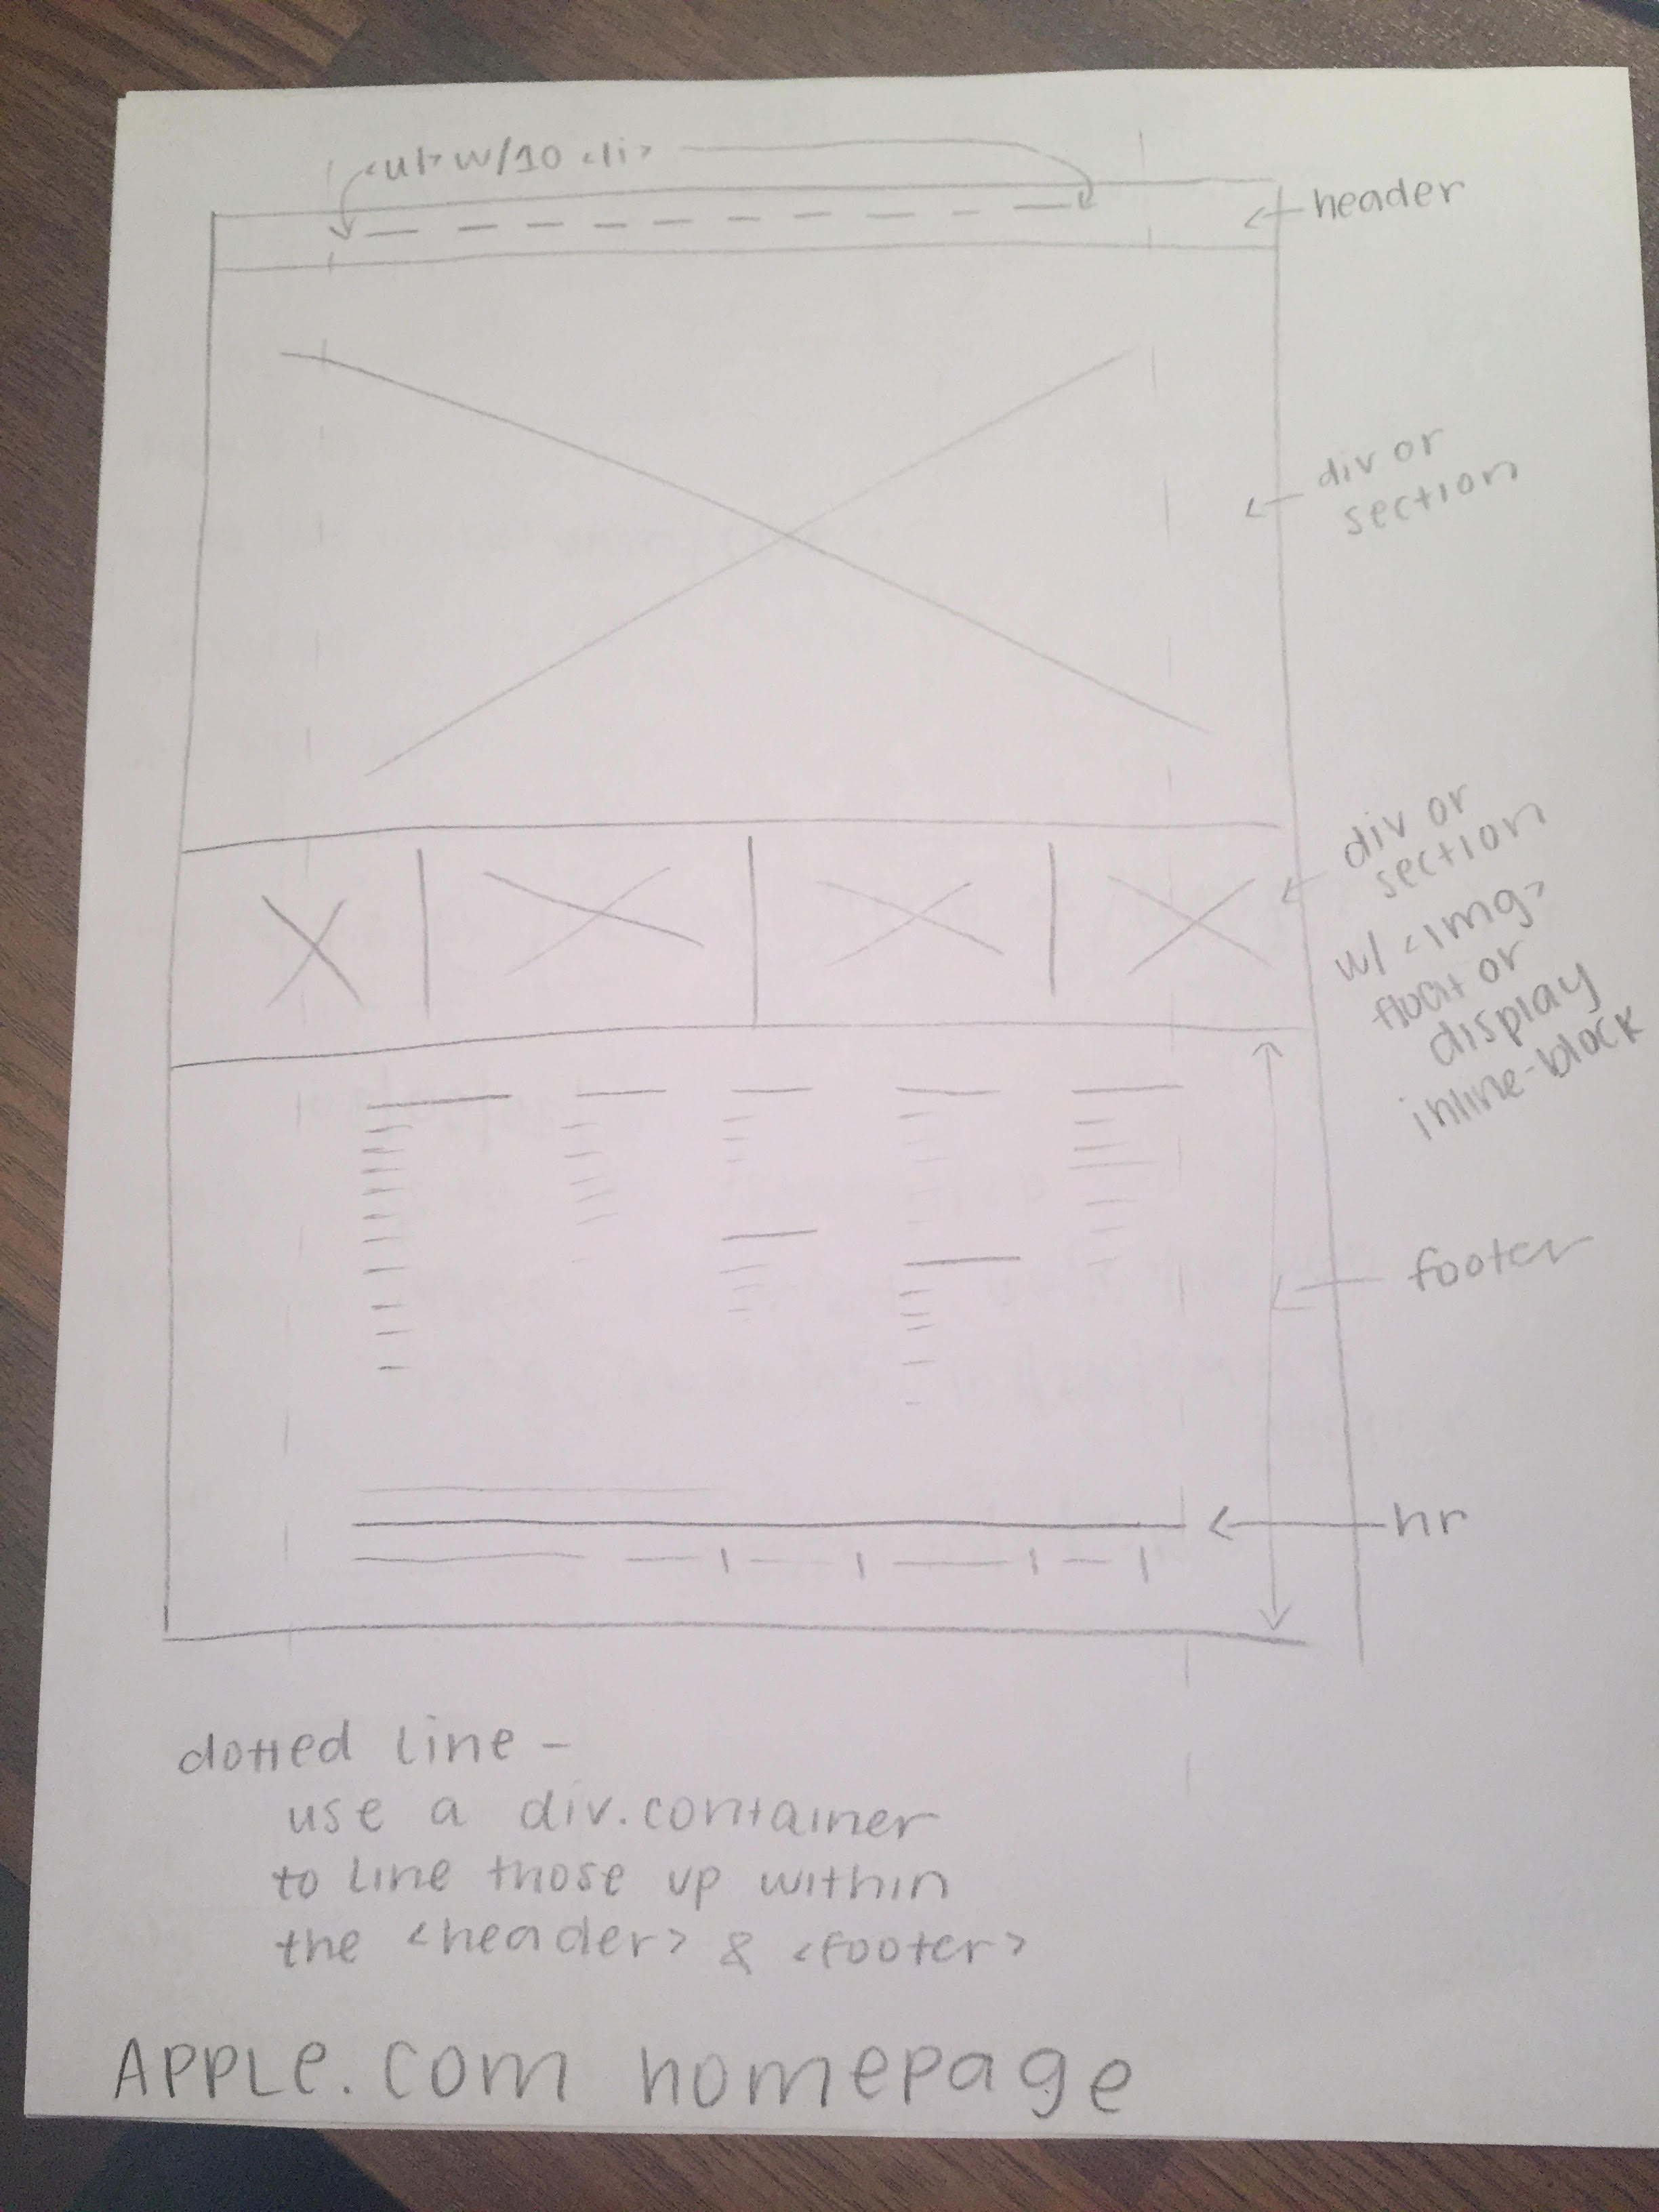 <ul> w/10 <li>
header
div or
section
div or
section
w/ <img>
float or
display
inline-block
footer
hr
dotted line -
use a div.container
to line those up within
the <header> & <footer>
APPLe.com homepage